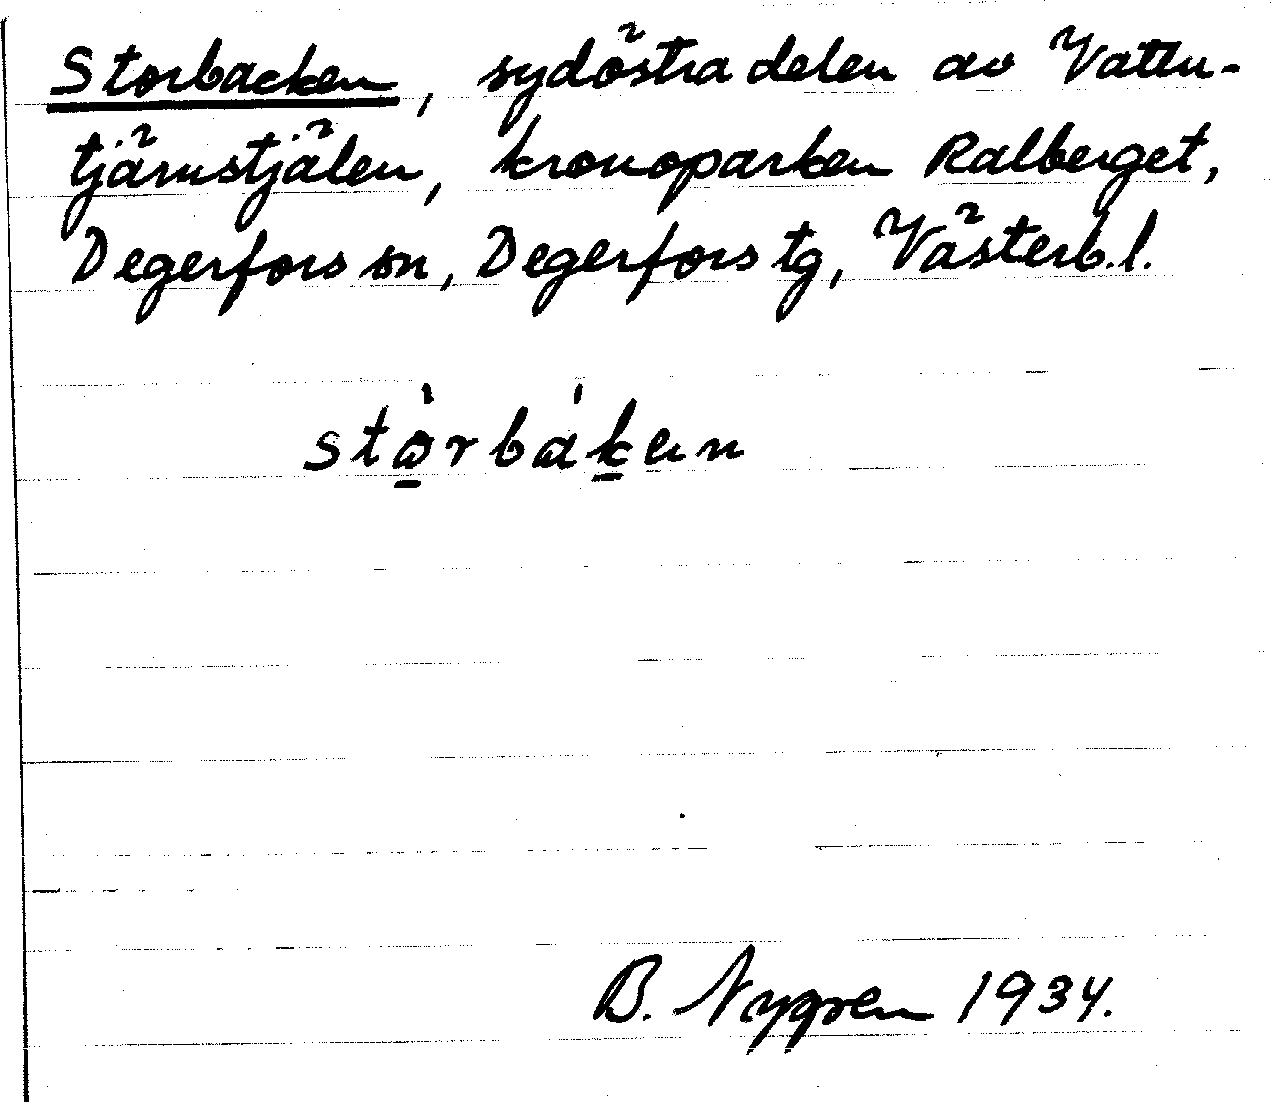 Storbacken, sydöstra delen av Vattu-
tjärnstjälen, kronoparken Ralberget,
Degerfors sn, Degerfors tg, Västerb.l.
stòrbáken
B. Nygren 1934.